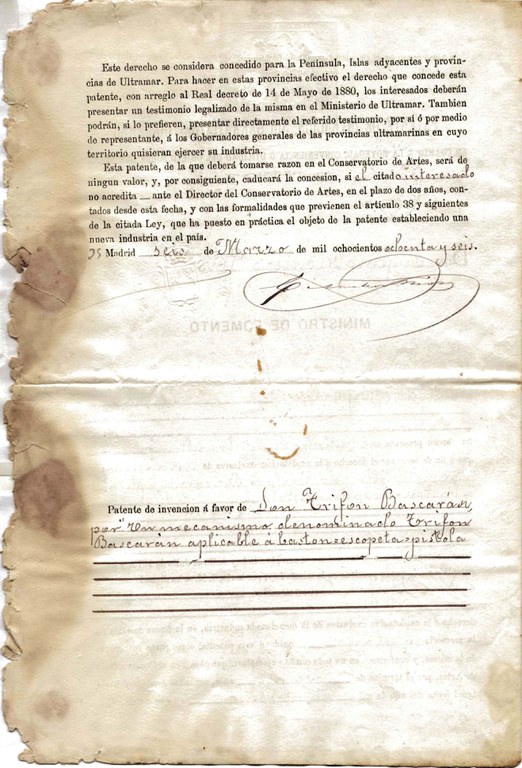 Este derecho se considera concedido para la Península, Islas adyacentes y provin-
cias de Ultramar. Para hacer en estas provincias efectivo el derecho que concede esta
patente, con arreglo al Real decreto de 14 de Mayo de 1880, los interesados deberán
presentar un testimonio legalizado de la misma en el Ministerio de Ultramar. Tambien
podrán, si lo prefieren, presentar directamente el referido testimonio, por sí ó por medio
de representante, á los Gobernadores generales de las provincias ultramarinas en cuyo
territorio quisieran ejercer su industria.
Esta patente, de la que deberá tomarse razon en el Conservatorio de Artes, será de
ningun valor; y, por consiguiente, caducará la concesion, si el citado interesado
no acredita ante el Director del Conservatorio de Artes, en el plazo de dos años, con-
tados desde esta fecha, y con las formalidades que previenen el artículo 38 y siguientes
de la citada Ley, que ha puesto en práctica el objeto de la patente estableciendo una
nueva industria en el país.
Madrid seis de Marzo de mil ochocientos ochenta y seis.
MINISTRO DE FOMENTO
Patente de invencion á favor de Don Trifon Bascarán,
por "Un mecanismo denominado Trifon
Bascarán aplicable á baston=escopeta=pistola